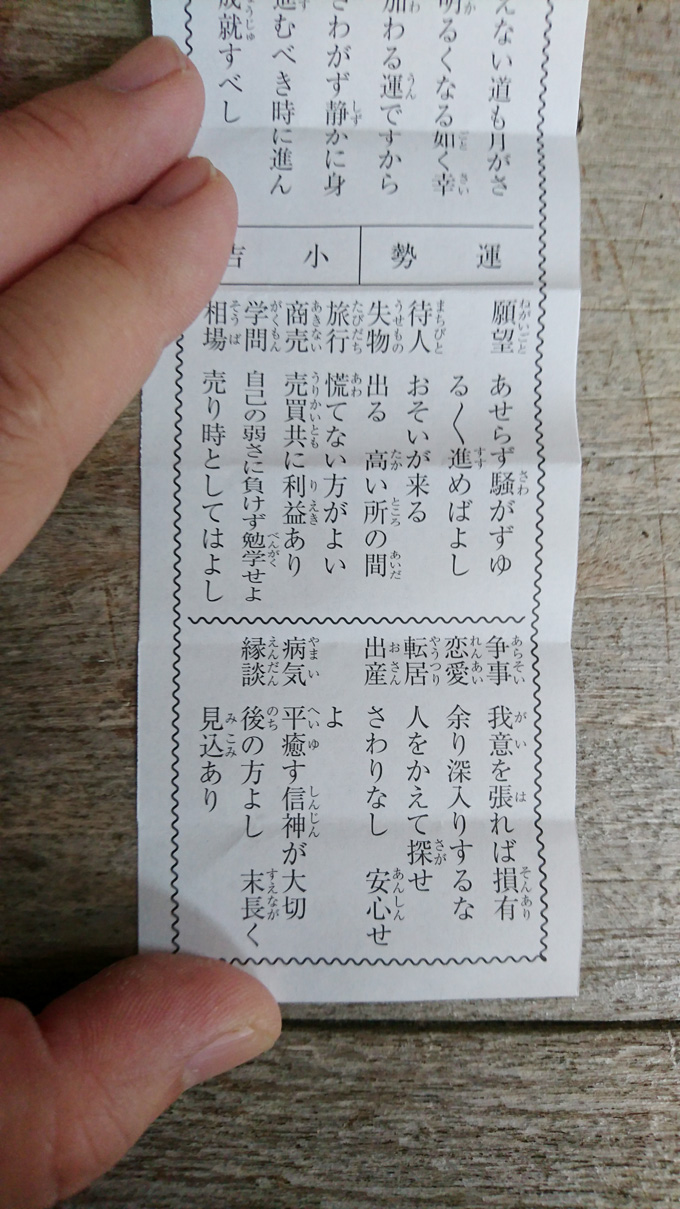 えない道も月がさ
明るくなる如く幸
加わる運ですから
さわがず静かに身
進むべき時に進ん
成就すべし
運勢 小吉
願望 あせらず騒がずゆ
る〱進めばよし
待人 おそいが来る
失物 出る 高い所の間
旅行 慌てない方がよい
商売 売買共に利益あり
学問 自己の弱さに負けず勉学せよ
相場 売り時としてはよし
争事 我意を張れば損有
恋愛 余り深入りするな
転居 人をかえて探せ
出産 さわりなし 安心せ
よ
病気 平癒す信神が大切
縁談 後の方よし 末長く
見込あり